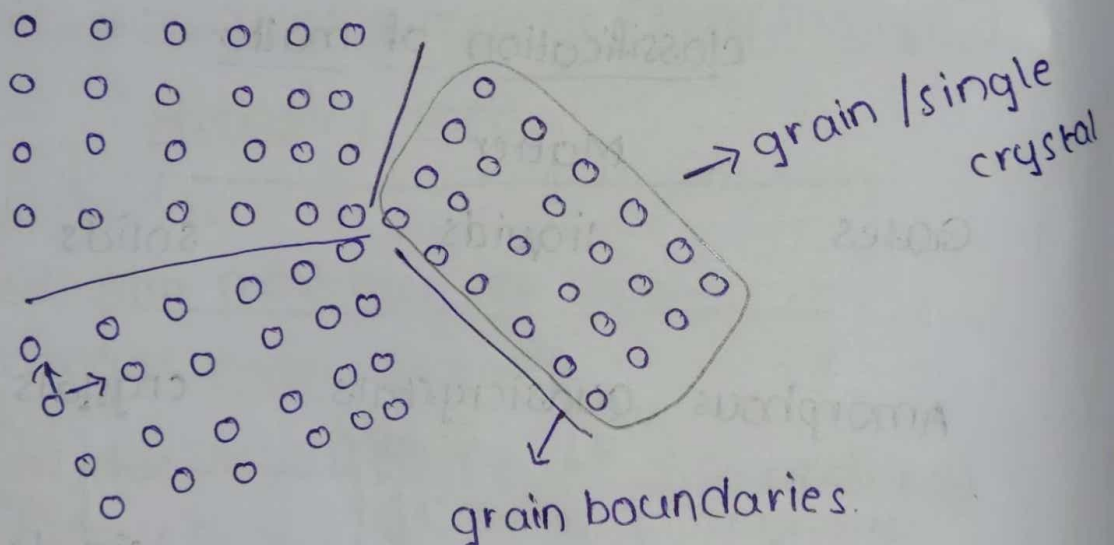 grain /single
crystal
grain boundaries.